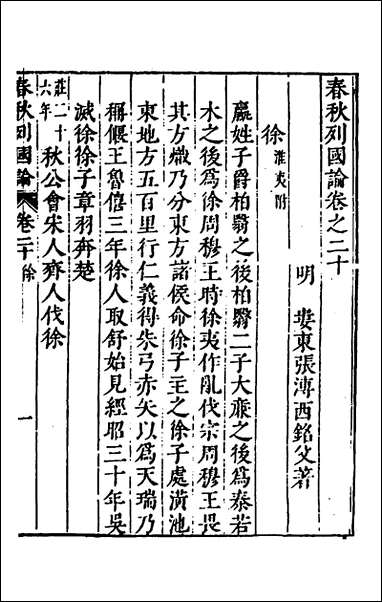 春秋列國論卷之二十
明 婁東張溥西銘父著
徐 淮夷附
嬴姓子爵柏翳之後柏翳二子大廉之後爲秦若
木之後爲徐周穆王時徐夷作亂伐宗周穆王畏
其方熾乃分東方諸侯命徐子主之徐子處潢池
東地方五百里行仁義得朱弓赤矢以爲天瑞乃
稱偃王魯僖三年徐人取舒始見經昭三十年吳
滅徐徐子章羽奔楚
莊二十六年 秋公會宋人齊人伐徐
春秋列國論 卷二十 徐 一